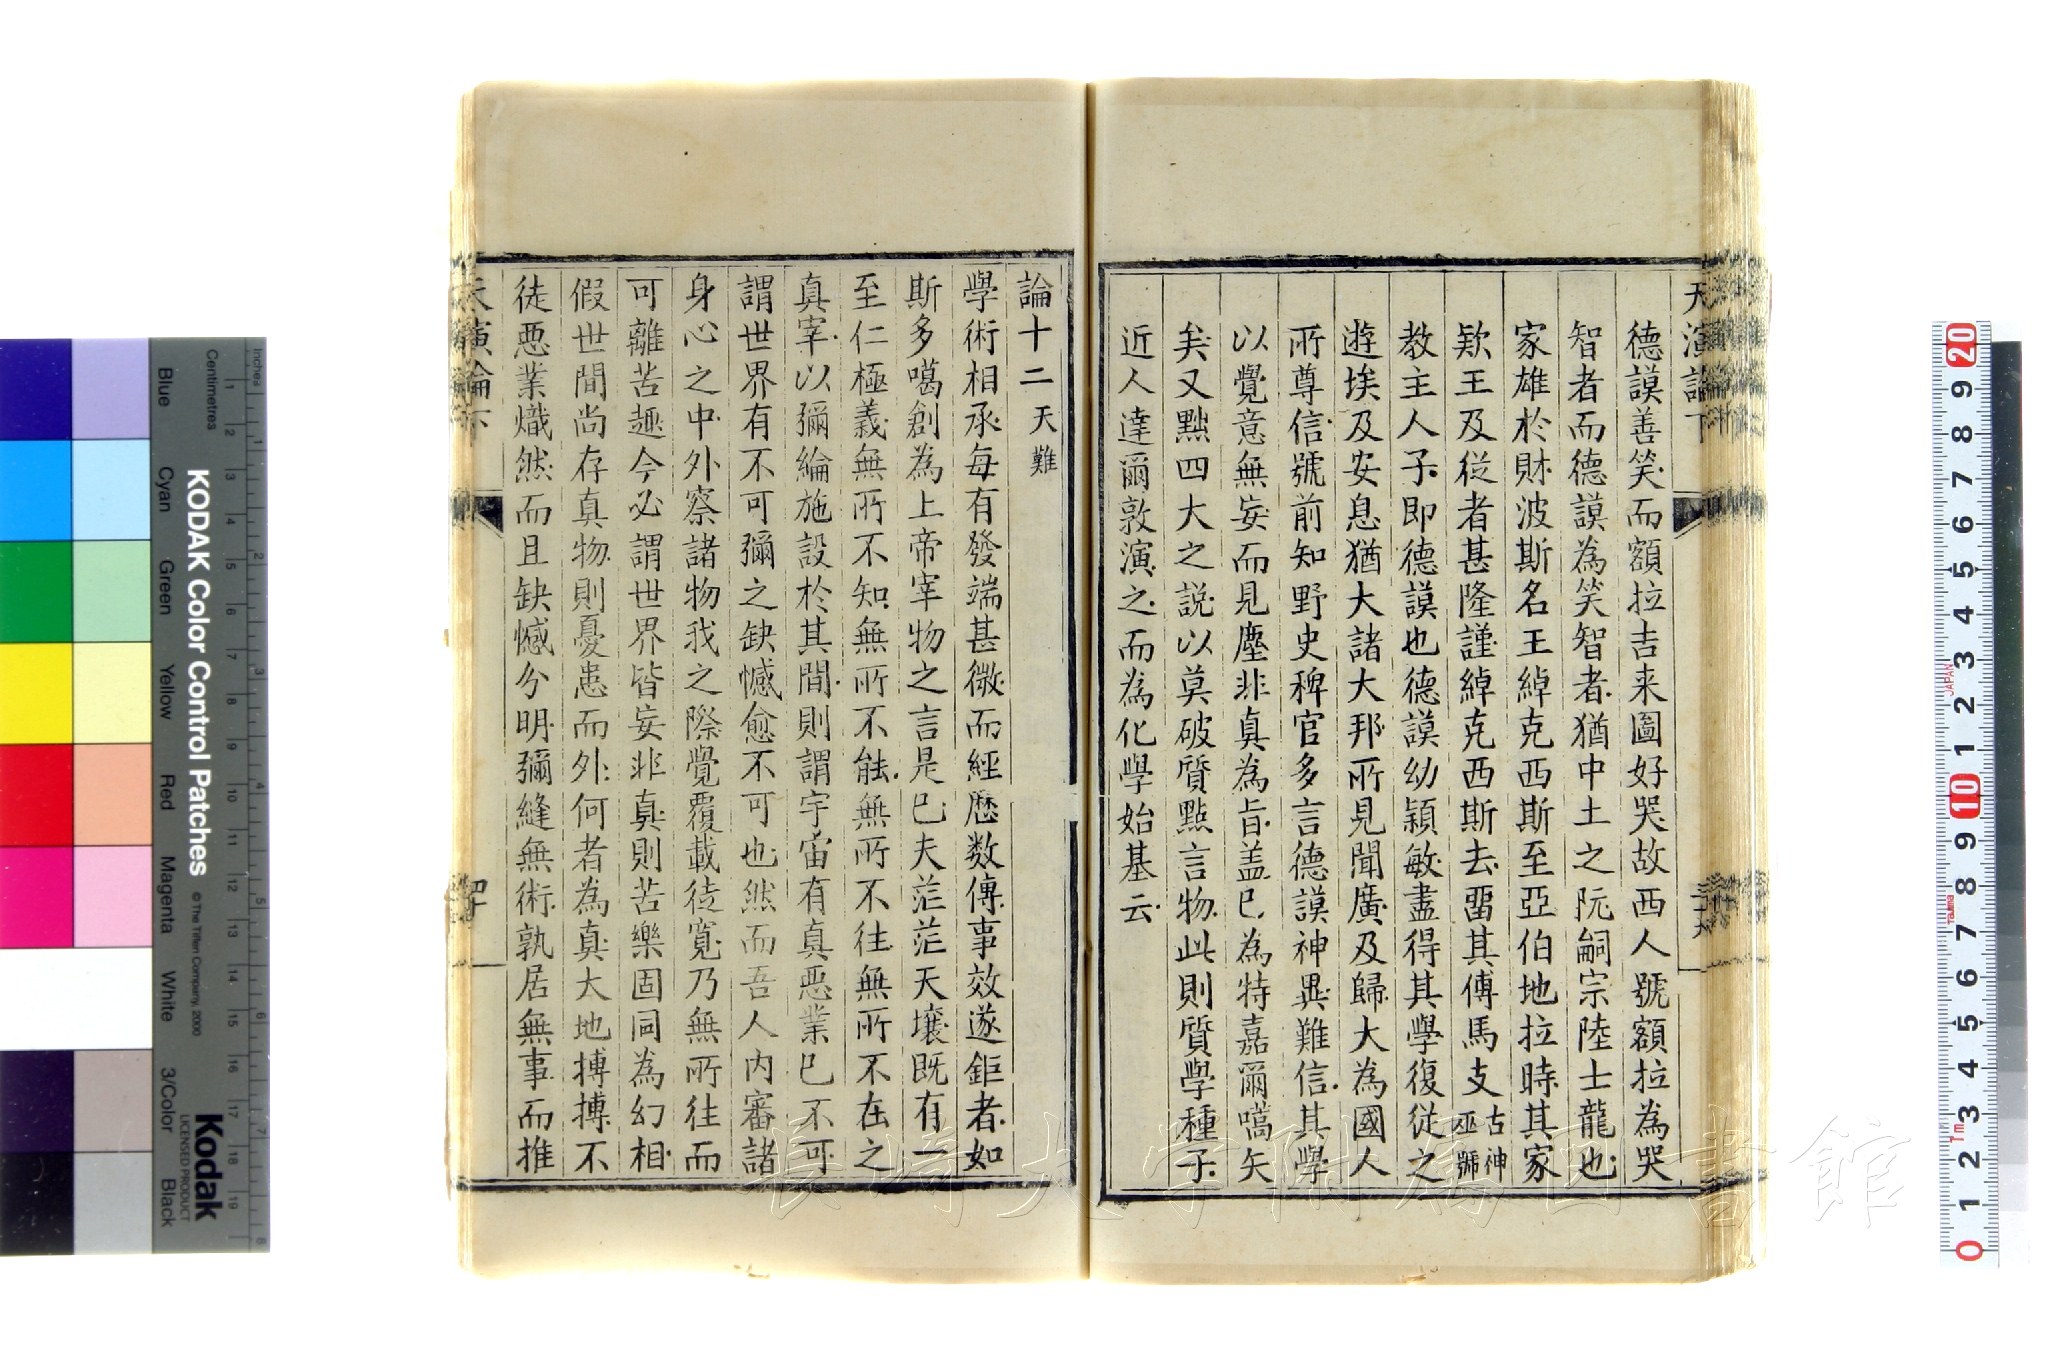 天演論下
德謨善笑而額拉吉来圖好哭故西人號額拉為哭
智者而德謨為笑智者猶中土之阮嗣宗陸士龍也
家雄於財波斯名王綽克西斯至亞伯地拉時其家
欵王及從者甚隆謹綽克西斯去畱其傅馬支古神巫號
教主人子即德謨也德謨幼穎敏盡得其學復從之
遊埃及安息猶大諸大邦所見聞廣及歸大為國人
所尊信號前知野史稗官多言德謨神異難信其學
以覺意無妄而見塵非真為旨盖已為特嘉爾嚆矢
矣又黜四大之説以莫破質點言物此則質學種子
近人達爾敦演之而為化學始基云
論十二 天難
學術相承每有發端甚微而經歷数傳事效遂鉅者如
斯多噶創為上帝宰物之言是已夫茫茫天壤既有一
至仁極義無所不知無所不能無所不往無所不在之
真宰以彌綸施設於其間則謂宇宙有真惡業已不可
謂世界有不可彌之缺憾愈不可也然而吾人内審諸
身心之中外察諸物我之際覺覆載徒寬乃無所往而
可離苦趣今必謂世界皆妄非真則苦樂固同為幻相
假世間尚存真物則憂患而外何者為真大地摶摶不
徒惡業熾然而且缺憾分明彌縫無術孰居無事而推
天演論下
四十
KODAK Color Control Patches
© The Tiffen Company, 2000
Kodak
LICENSED PRODUCT
Inches
Centimetres
Blue
Cyan
Green
Yellow
Red
Magenta
White
3/Color
Black
1 2 3 4 5 6 7 8
1 2 3 4 5 6 7 8 9 10 11 12 13 14 15 16 17 18 19
20 9 8 7 6 5 4 3 2 1 10 9 8 7 6 5 4 3 2 1 0
JAPAN
Tajima
長崎大学附属図書館